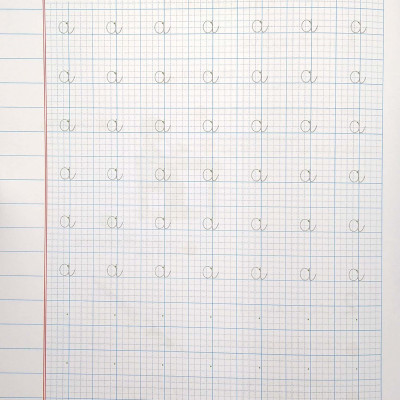 a a a a a a a
a a a a a a a
a a a a a a a
a a a a a a a
a a a a a a a
a a a a a a a